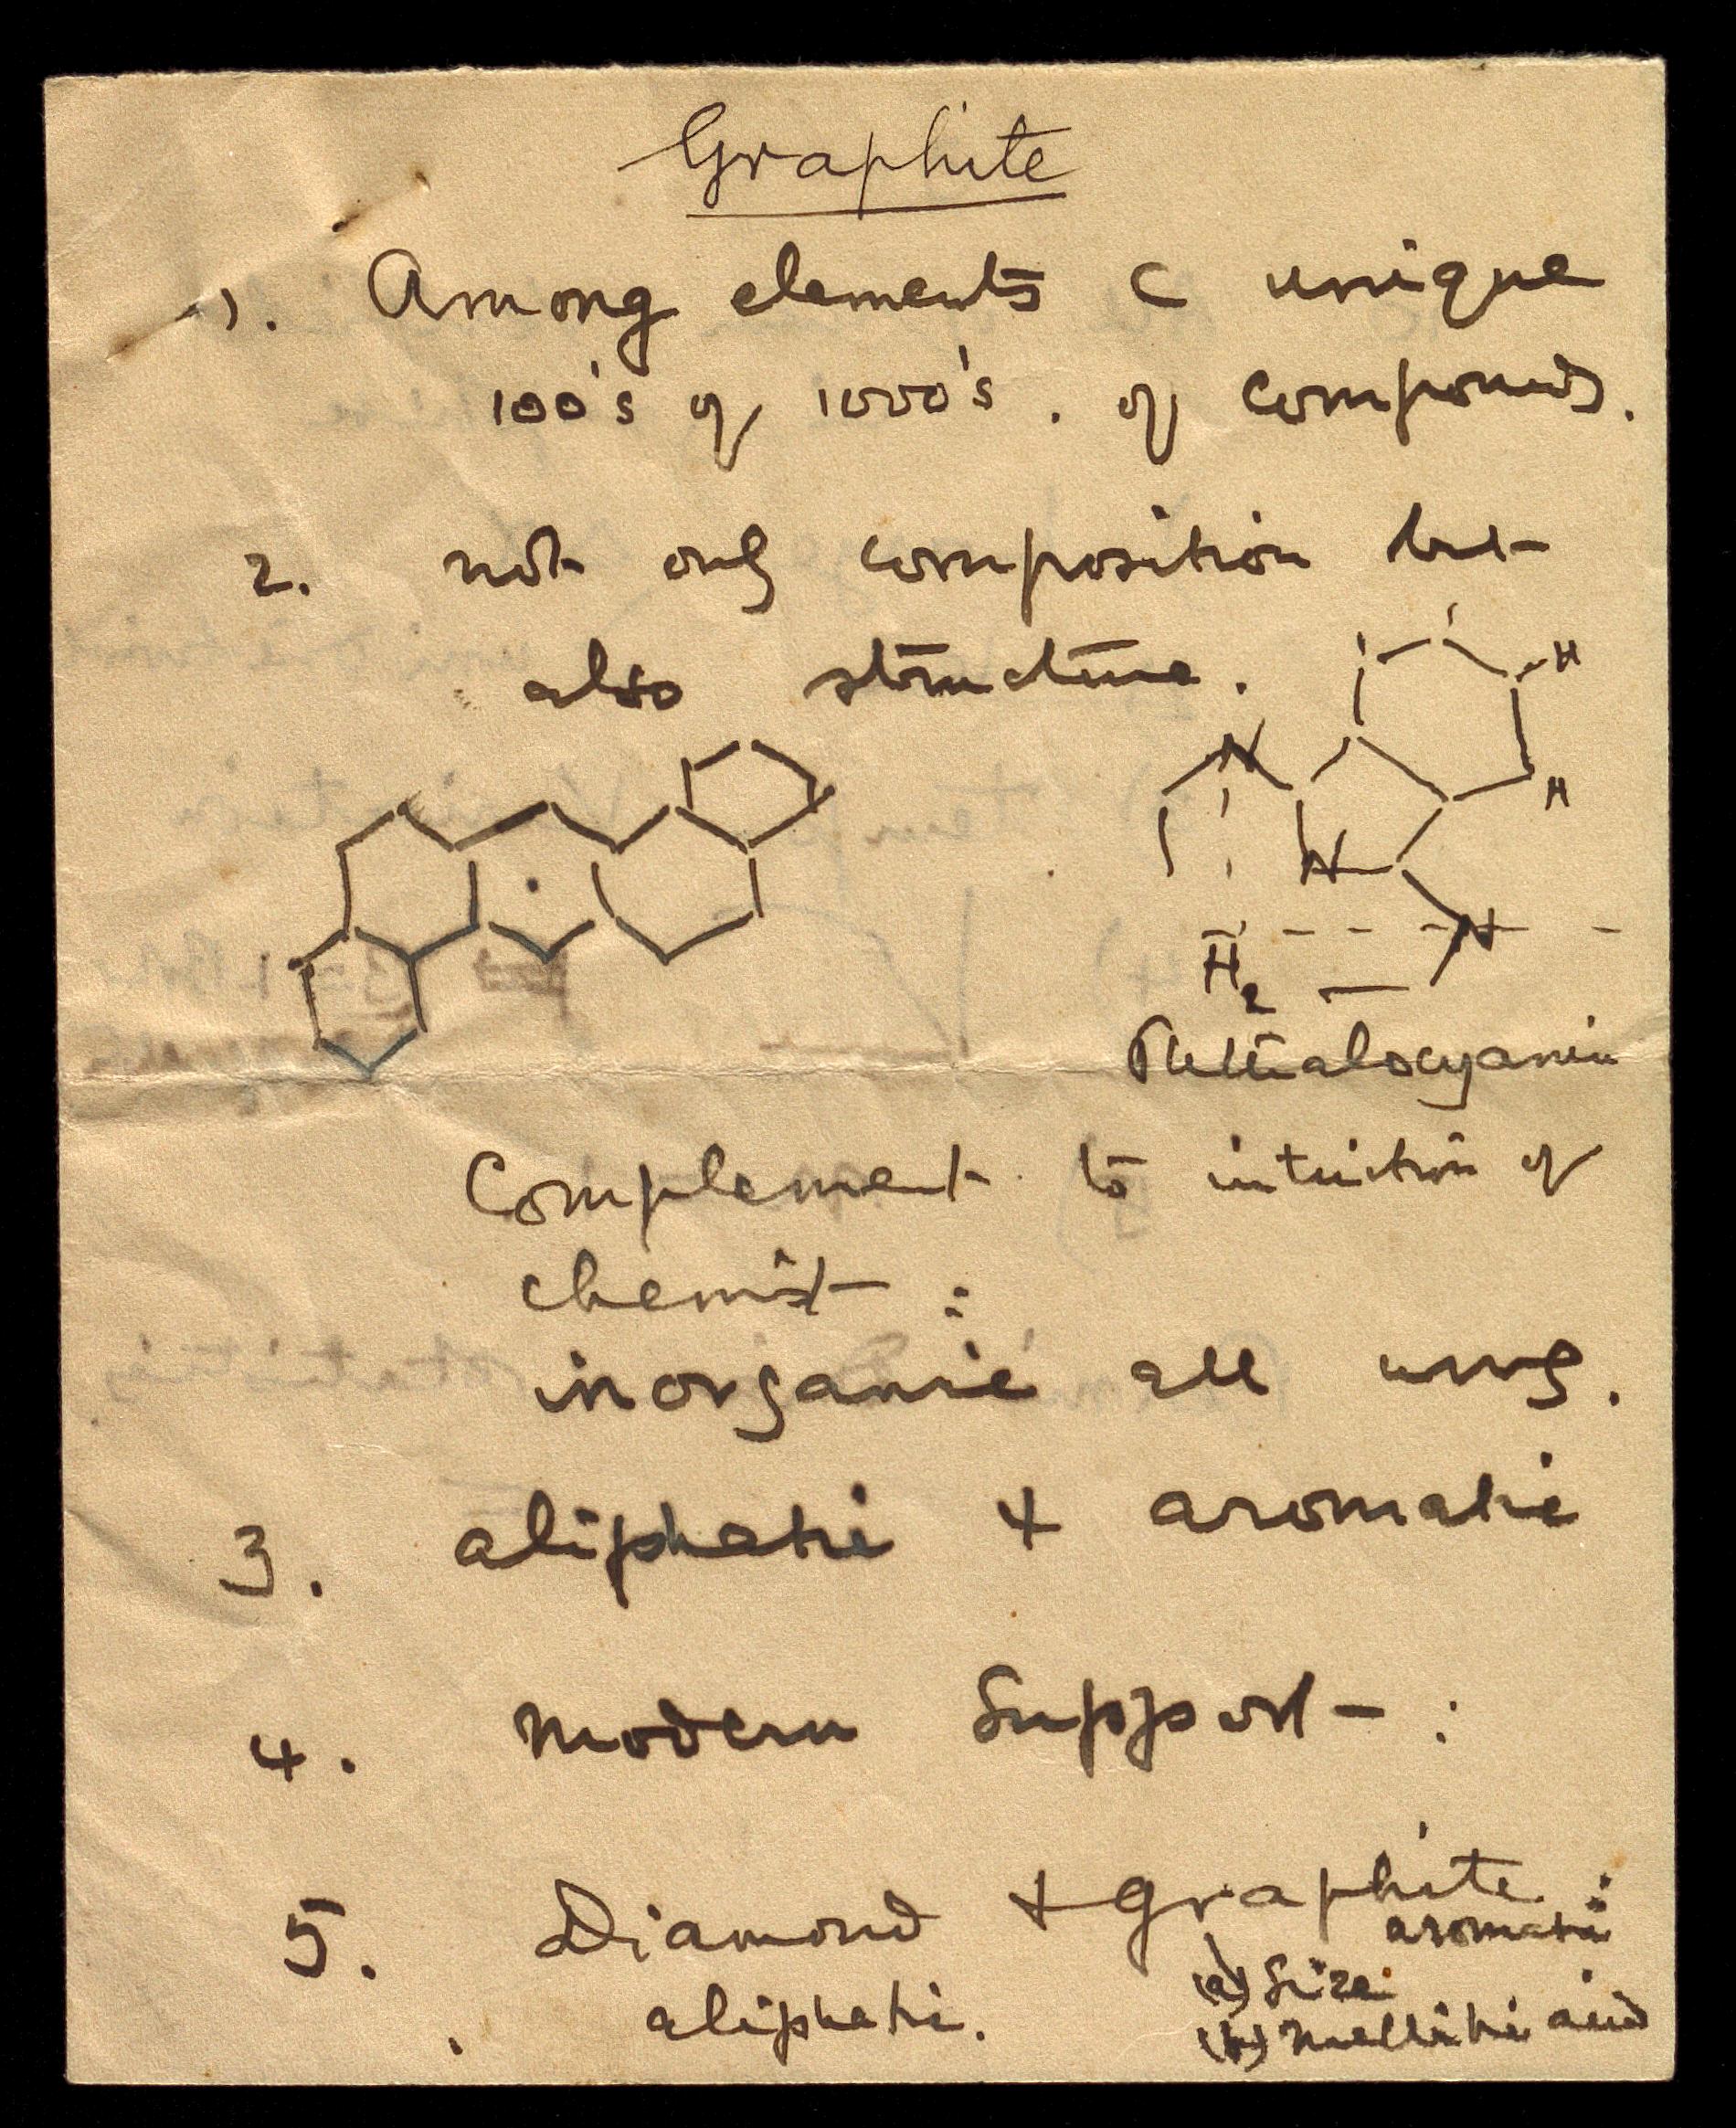 Graphite
1. Among elements C unique
100's of 1000's. of compounds.
2. not only composition but
also structure.
H
N
H
N
N
H2
Phthalocyanin
Complement to intuition of
chemist :
inorganic all wrong.
3. aliphatic + aromatic
4. modern Support :
5. Diamond + graphite :
aromatic
aliphatic.
(a) Size
(b) mellitic acid